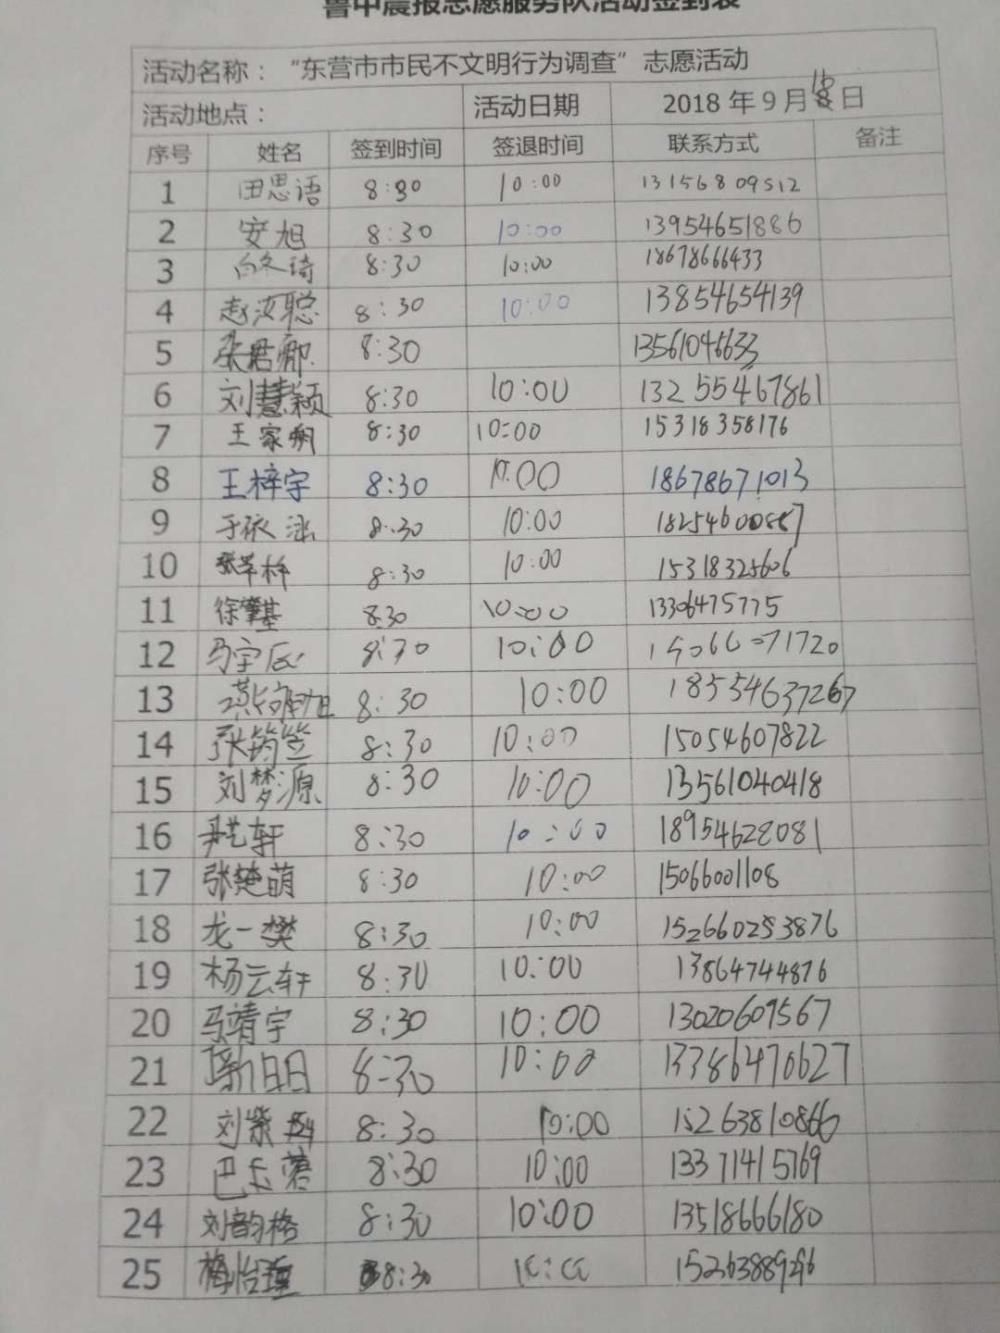 鲁中晨报志愿服务队活动签到表
活动名称：“东营市市民不文明行为调查”志愿活动
活动地点： 活动日期 2018 年 9 月 16 日
序号 姓名 签到时间 签退时间 联系方式 备注
1 田思语 8:30 10:00 13156809512
2 安旭 8:30 10:00 13954651886
3 8:30 10:00 18678666433
4 赵汝聪 8:30 10:00 13854654139
5 张君卿 8:30 13561046633
6 刘慧颖 8:30 10:00 13255467861
7 王家朔 8:30 10:00 15318358176
8 王梓宇 8:30 10:00 18678671013
9 于依泓 8:30 10:00
10 8:30 10:00 15318325606
11 徐肇基 8:30 10:00 13306475775
12 马宇辰 8:30 10:00
13 8:30 10:00 18554637267
14 张筠笠 8:30 10:00 15054607822
15 刘梦源 8:30 10:00 13561040418
16 8:30 10:00 18954628081
17 张楚萌 8:30 10:00 15066001108
18 龙一樊 8:30 10:00 152660253876
19 杨云轩 8:30 10:00 13864744876
20 马靖宇 8:30 10:00 13020609567
21 8:30 10:00 13386470627
22 刘紫 8:30 10:00 15263810866
23 巴玉蓉 8:30 10:00 13371415769
24 刘韵格 8:30 10:00 13518666180
25 梅怡 8:30 10:00